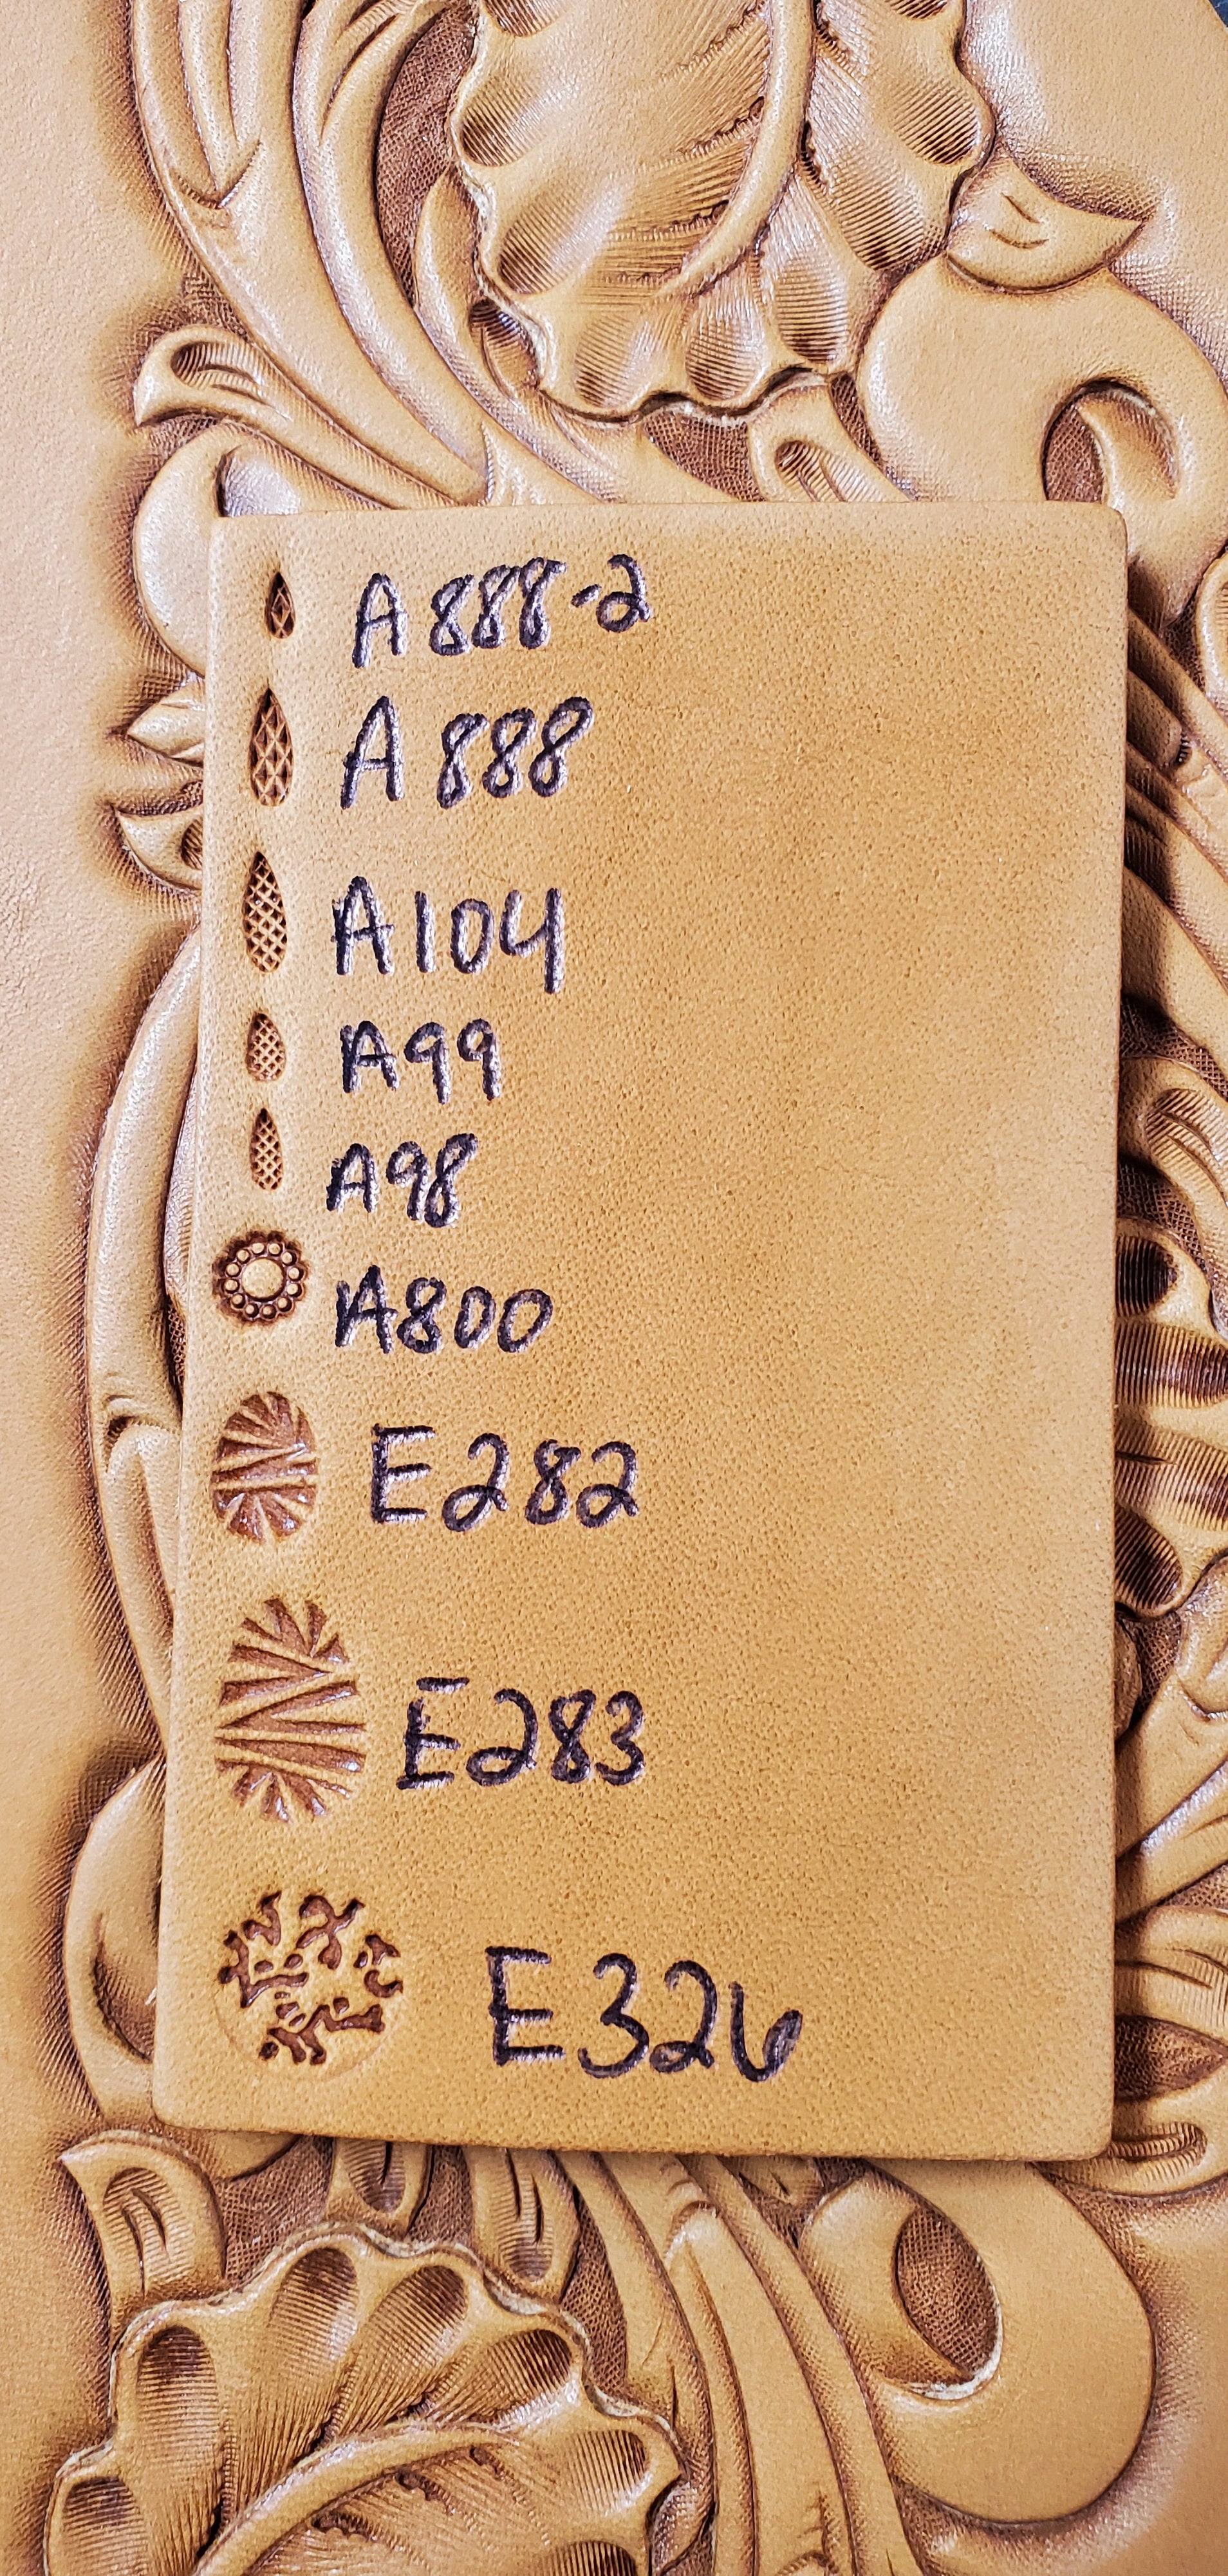 A888-2
A888
A104
A99
A98
A800
E282
E283
E326